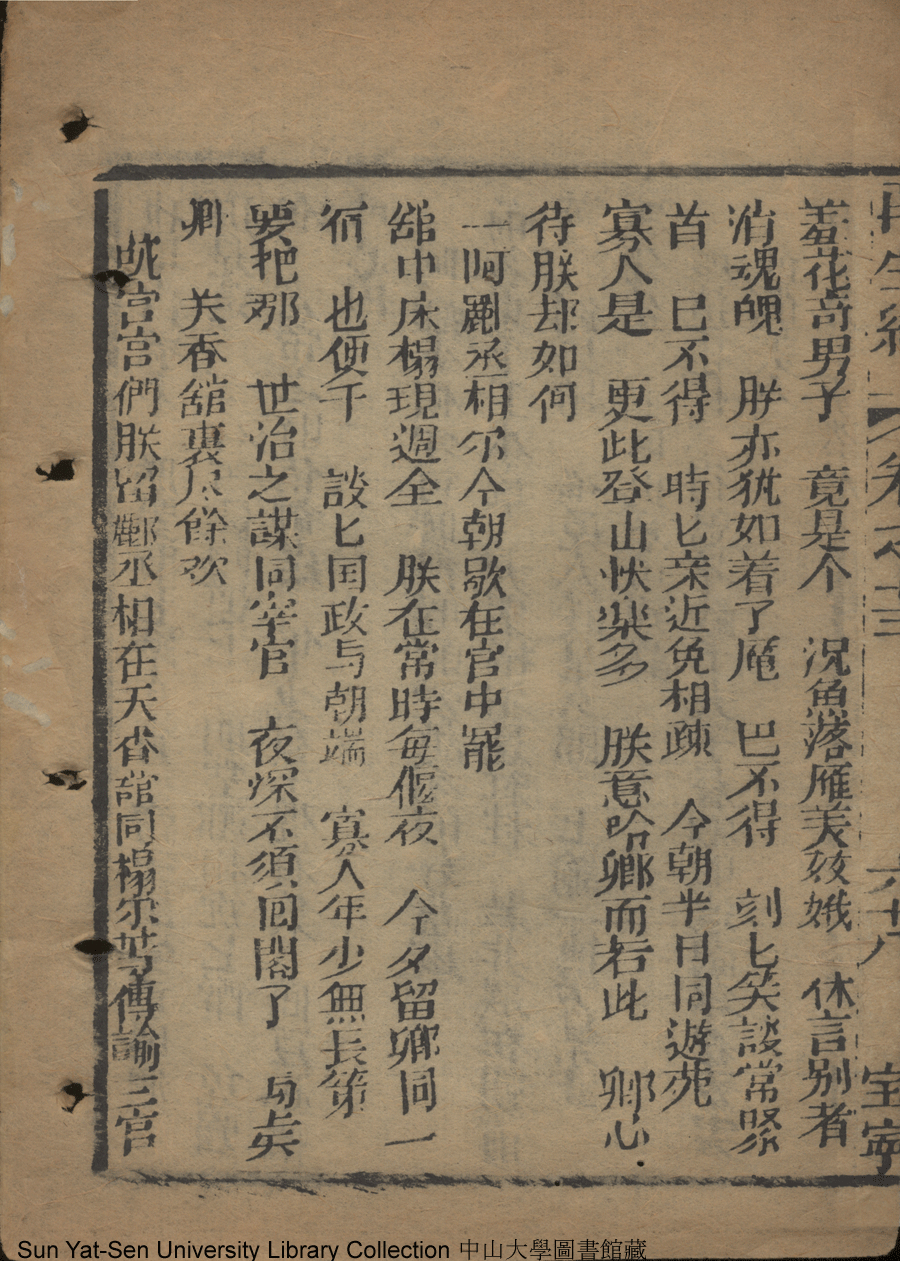 再生緣 卷之十三 六十八 宝寧
羞花竒男子 竟是个 况魚落雁美姣娥 休言别者
消魂魄 朕亦犹如着了魔 巴不得 刻匕笑談常聚
首 巳不得 時匕亲近免相踈 今朝半日同遊苑
寡人是 更此登山快樂多 朕意哈卿而若此 卿心
待朕却如何
一阿酈丞相尔今朝歇在官中罷
舘中床榻現週全 朕在常時每偃夜 今夕留卿同一
宿 也便于 談匕国政与朝端 寡人年少無長策
要把那 世治之謀同宰官 夜深不須回閣了 与
卿 关香舘裏尽餘欢
宫宫們朕留酈丞相在天香舘同榻尔等傳諭三官
Sun Yat-Sen University Library Collection 中山大學圖書館藏